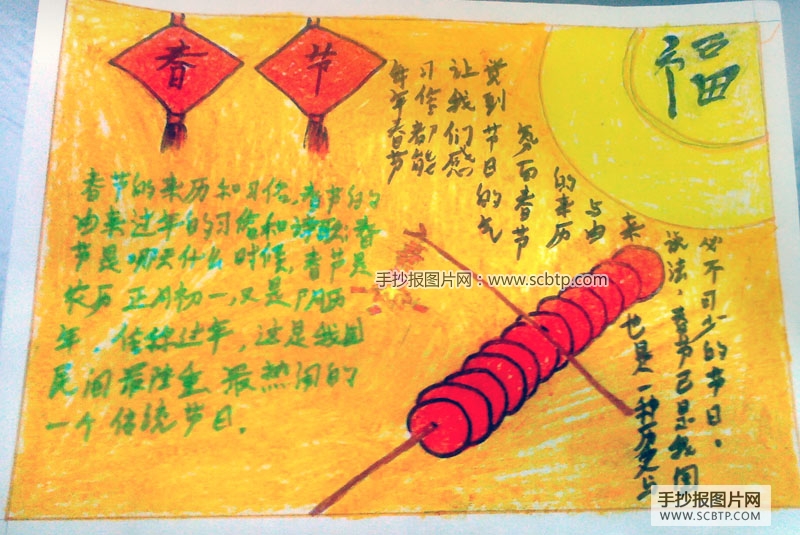 春
节
福
每年春节
习俗都能
让我们感
觉到节日的气
氛而春节
的来历
与由
来
也是一种历史上
说法,春节已是我国
必不可少的节日。
春节的来历和习俗,春节的
由来过年的习俗和诗歌,春
节是哪天什么时候,春节是
农历正月初一,又是阴历
年,俗称过年,这是我国
民间最隆重最热闹的
一个传统节日.
手抄报图片网:www.scbtp.com
手抄报图片网
WWW.SCBTP.COM